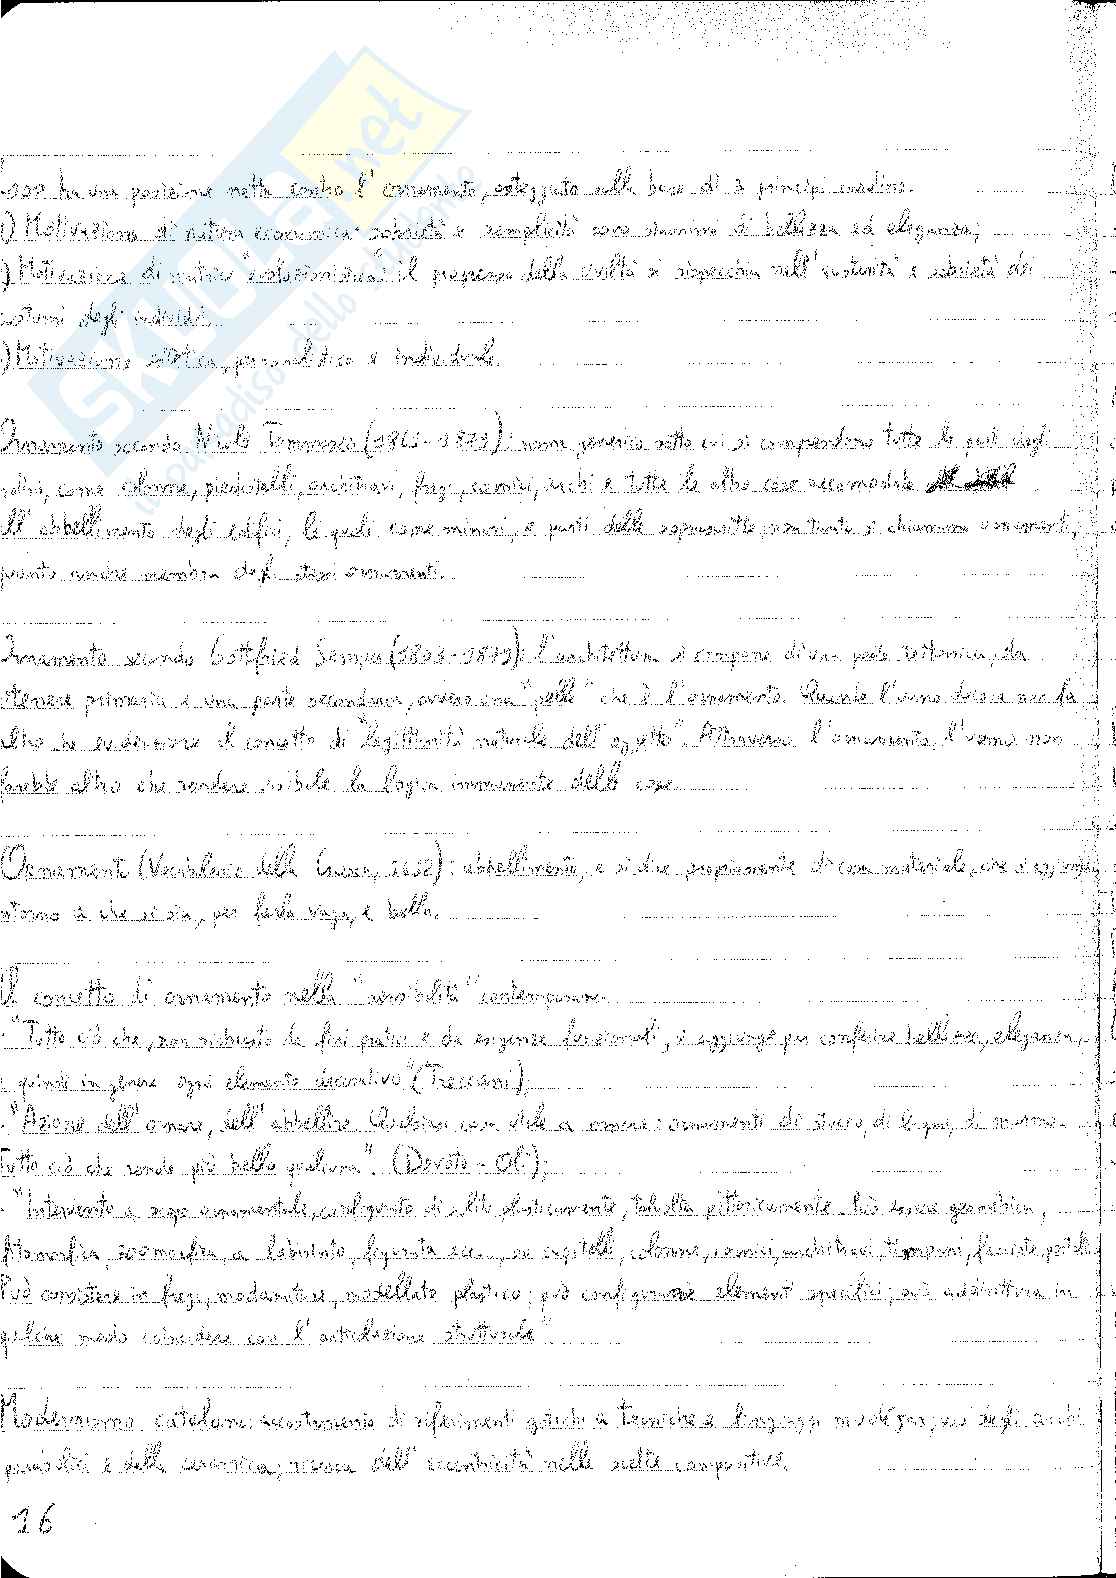 ha una posizione netta contro l'ornamento, sulla base di 3 principi cardine.
1) Motivazione di natura economica: sobrietà e semplicità sono sinonimi di bellezza ed eleganza;
) Motivazione di natura "evoluzionistica": il progresso della civiltà si rispecchia nell'austerità e sobrietà dei
costumi degli individui.
) Motivazione estetica, personalistica e individuale.
Ornamento secondo Niccolò Tommaseo ( - ): nome generico sotto cui si comprendono tutte le parti degli
come colonne, piedistalli, architravi, fregi, cornici, archi e tutte le altre cose accomodate
all'abbellimento degli edifici, le quali come minori, e parti delle soprascritte, pertanto si chiamano ornamenti,
quanto membra degli stessi ornamenti.
Ornamento secondo Gottfried Semper (1803-1879): l'architettura si compone di una parte tettonica, da
ritenere primaria e una parte secondaria, ovvero una "pelle" che è l'ornamento. Quando l'uomo decora non fa
altro che evidenziare il concetto di "legittimità naturale dell'oggetto". Attraverso l'ornamento, l'uomo non
farebbe altro che rendere visibile la logica immanente delle cose.
Ornamenti (Vocabolario della Crusca, 1612): abbellimento, e si dice propriamente di cosa materiale, che si aggiunga
ntorno a che si sia, per farla vaga, e bella.
Il concetto di ornamento nella "sensibilità" contemporanea
- "Tutto ciò che, non richiesto da fini pratici e da esigenze funzionali, si aggiunge per conferire bellezza, eleganza,
e quindi in genere ogni elemento decorativo" (Treccani);
- "Azione dell'ornare, dell'abbellire. Qualsiasi cosa utile a ornare: ornamenti di stucco, di legno, di marmo.
Tutto ciò che rende più bello qualcuno". (Devoto - Oli);
- "Intervento a scopo ornamentale, conseguito di solito plasticamente, talvolta pittoricamente. Può essere geometrica,
fitomorfica, zoomorfica, a labirinto, figurata ecc., su capitelli, colonne, cornici, architravi, timpani, facciate, portali.
Può consistere in fregi, modanature, modellato plastico; può configurare elementi specifici; può addirittura in
qualche modo coincidere con l'articolazione strutturale"
Modernismo catalano: accostamento di riferimenti gotici a tecniche e linguaggi mudéjar; uso degli archi
parabolici e della ceramica; ricerca dell'eccentricità nelle scelte compositive.
16
SKUOLA.net